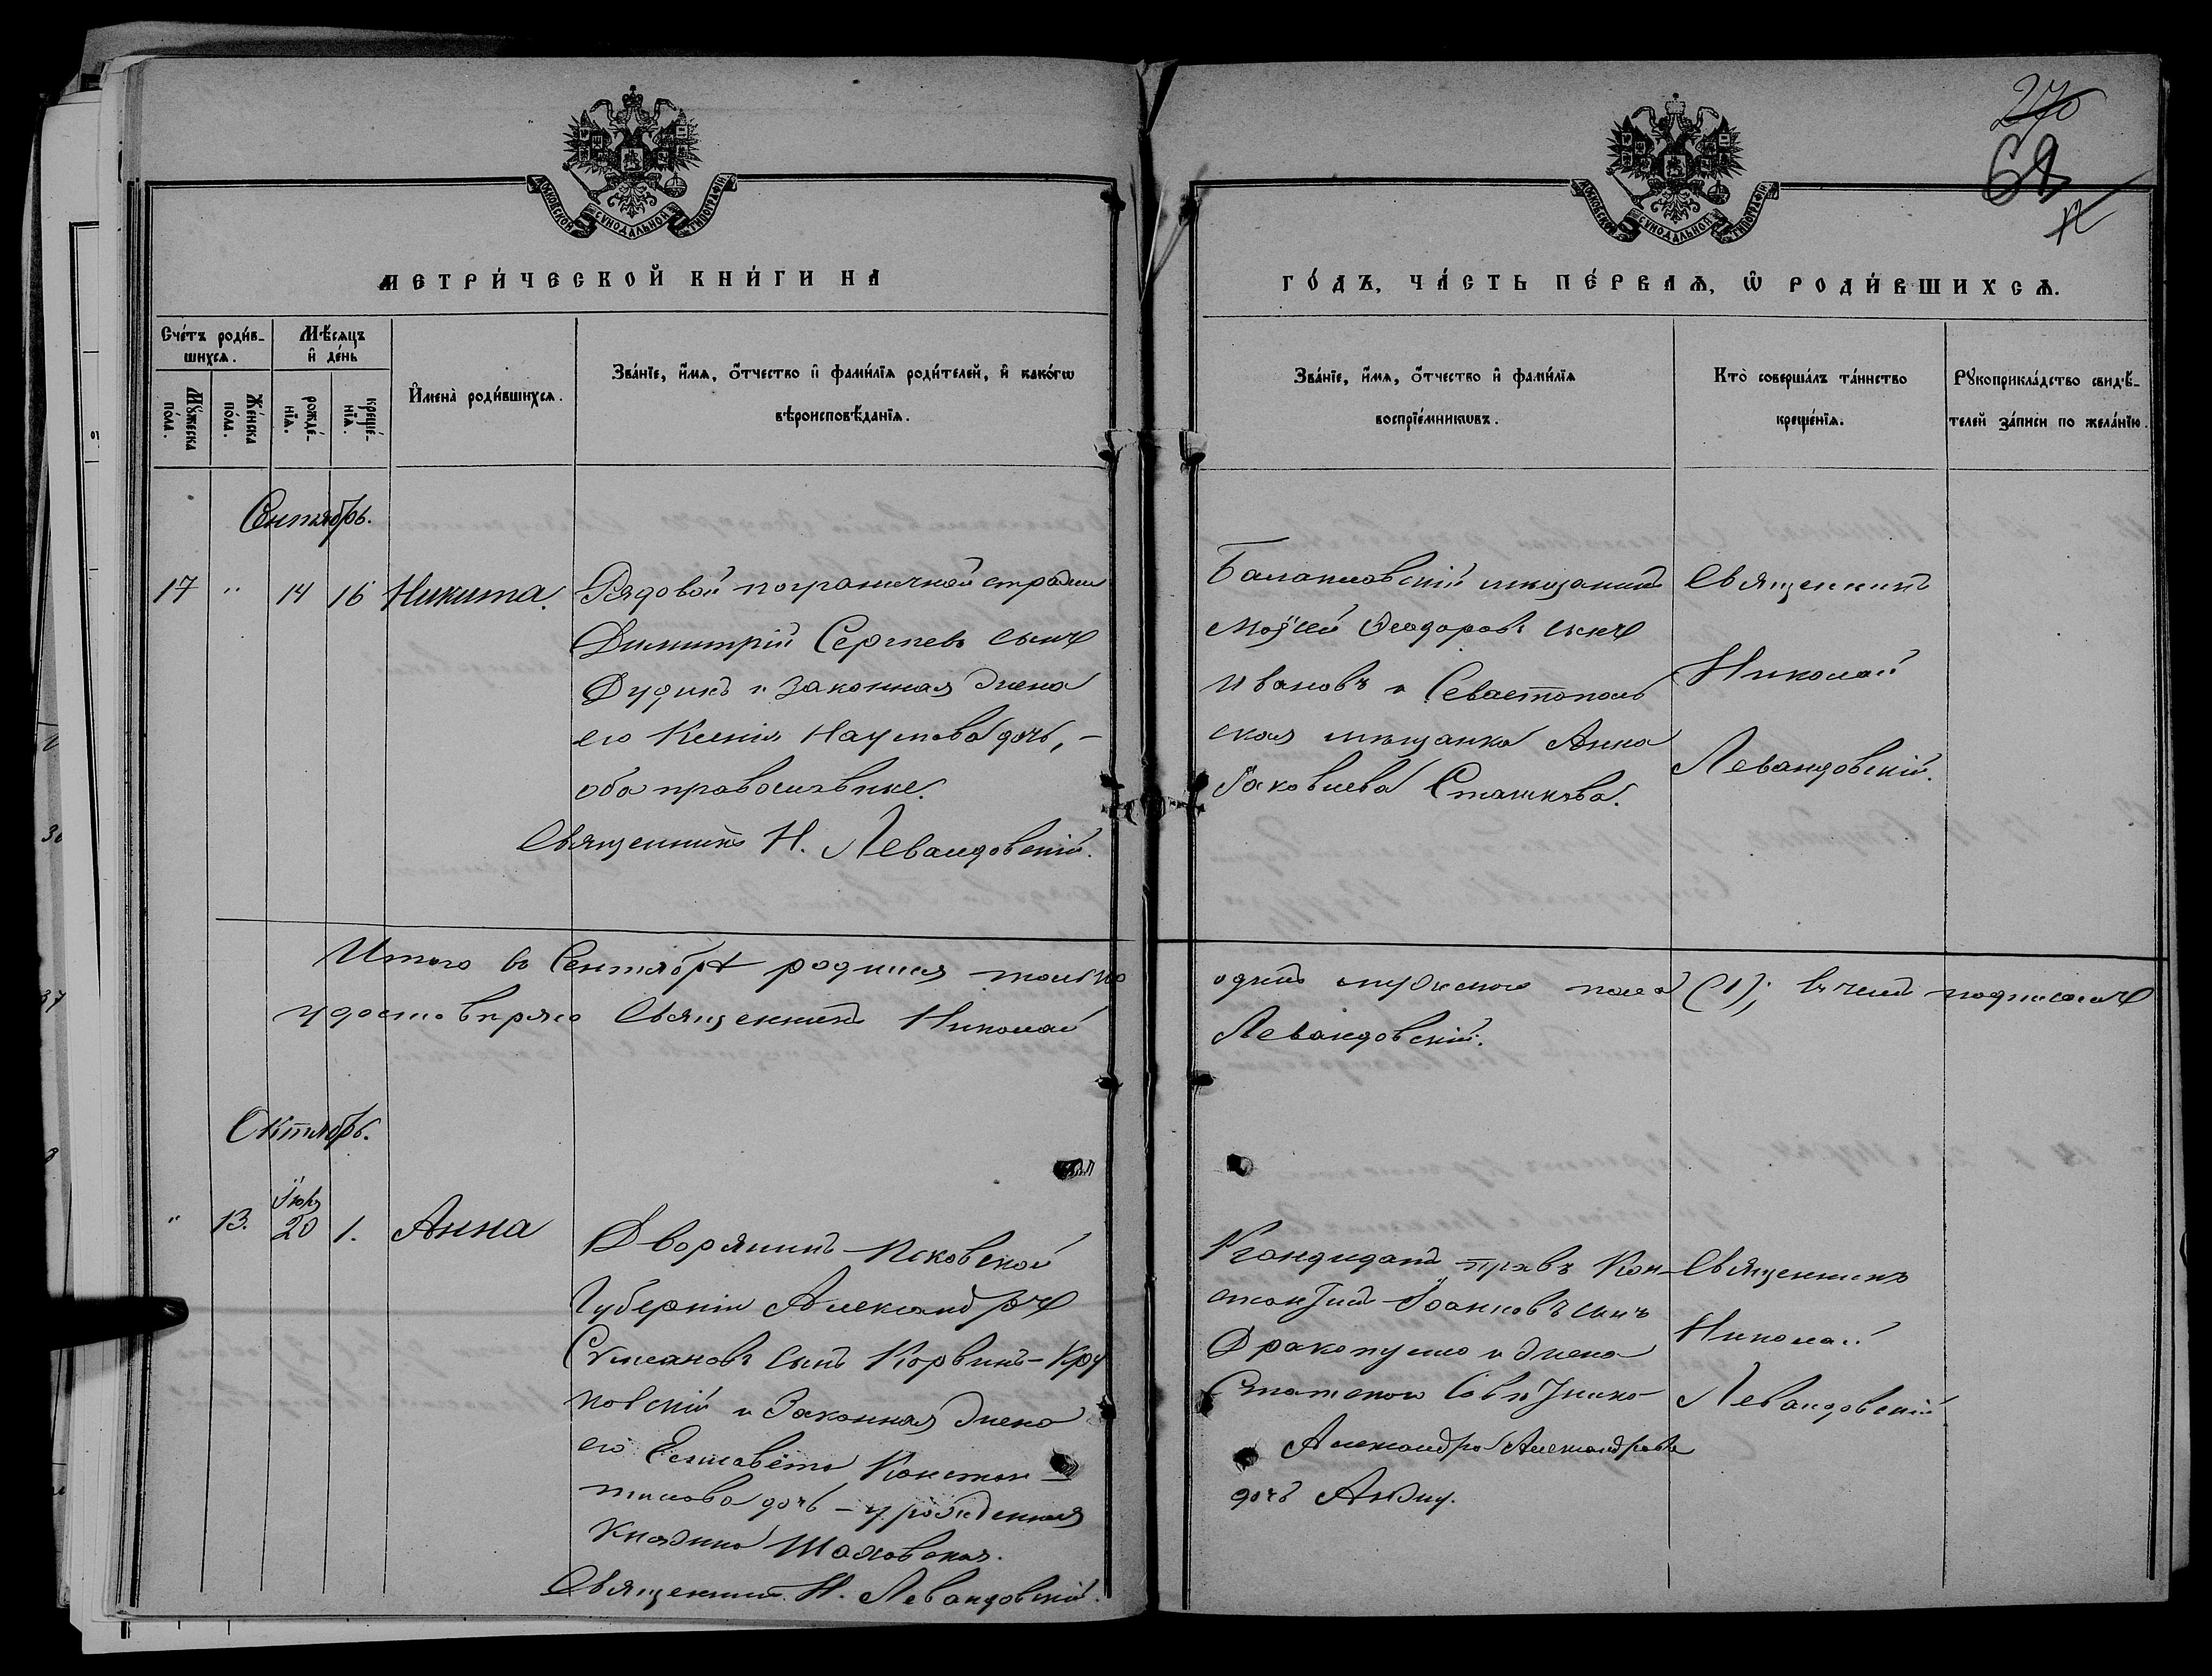 270
МОСКОВСКОЙ СѴНОДАЛЬНОЙ ТИПОГРАФІИ
МОСКОВСКОЙ СѴНОДАЛЬНОЙ ТИПОГРАФІИ
МЕТРИ́ЧЕСКОЙ КНИ́ГИ НА
ГО́ДЪ, ЧА́СТЬ ПЕ́РВАѦ, Ѡ РОДИ́ВШИХСѦ.
Сче́тъ роди́в-
шихсѧ.
Мꙋ́жеска по́ла.
Же́нска по́ла.
Мѣ́сѧцъ
и҆ де́нь
рожде́-
нїѧ.
креще́-
нїѧ.
И҆мена̀ роди́вшихсѧ.
Зва́нїе, и҆́мѧ, ѻ҆́тчество и҆ фами́лїѧ роди́телей, и҆ како́гѡ
вѣроисповѣ́данїѧ.
Зва́нїе, и҆́мѧ, ѻ҆́тчество и҆ фами́лїѧ
воспрїе́мникѡвъ.
Кто̀ соверша́лъ та́инство
креще́нїѧ.
Рꙋкоприкла́дство свидѣ́-
телей за́писи по жела́нїю.
Сентябрь.
17 " 14 16 Никита.
Рядовой пограничной стражи
Димитрій Сергѣевъ сынъ
Дудикъ и законная жена
его Ксенія Наумова дочь, –
оба православные.
Священникъ Н. Левандовскій.
Балаклавскій мѣщанинъ
Моѵсей Ѳеодоровъ сынъ
Ивановъ и Севастополь
ская мѣщанка Анна
Іаковлева Сташкова.
Священникъ
Николай
Левандовскій.
Итого въ Сентябрѣ родился только одинъ мужеского пола (1); въ чемъ подписомъ
удостовѣряю Священникъ Николай Левандовскій.
Октябрь.
" 13. Іюля 20 1. Анна
Дворянинъ Псковской
Губерніи Александръ
Семеновъ сынъ Корвинъ-Кру
ковскій и Законная жена
его Елисавета Констан
тинова дочь – урожденная
Княжна Шаховская.
Священникъ Н. Левандовскій.
Кандидатъ правъ Кон-
стантинъ Іоанновъ сынъ
Дракопуло и жена
Статского Совѣтника
Александра Александрова
дочь
Священникъ
Николай
Левандовскій